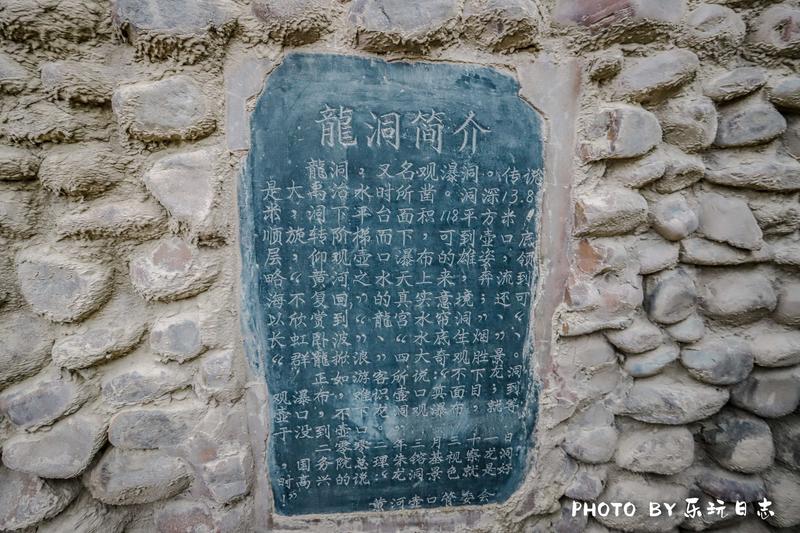 龍洞简介
龍洞，又名观瀑洞。传说
是大禹治水时所凿。洞深13.8
米，洞下平台面积118平方米。
顺旋转阶梯而下，可到壶口底
层，仰观壶口瀑布的雄姿，领
略“黄河之水天上来，奔流到
海不复回”的真实意境；还可
以欣赏到“龍宫水帘洞”、“
长虹卧波”、“水底生烟”、
“群龍掀浪”四大奇观胜景。
正如游客所说“不下龙洞
观瀑布，难识壶口真面目；到
壶口不下龙洞观瀑布，就等
于没到壶口”。
年三月三十日
，国务院总理朱镕基视察龙洞
时高兴的说：“龙洞景色就是好
！”
黄河壶口管委会
PHOTO BY 乐玩日志